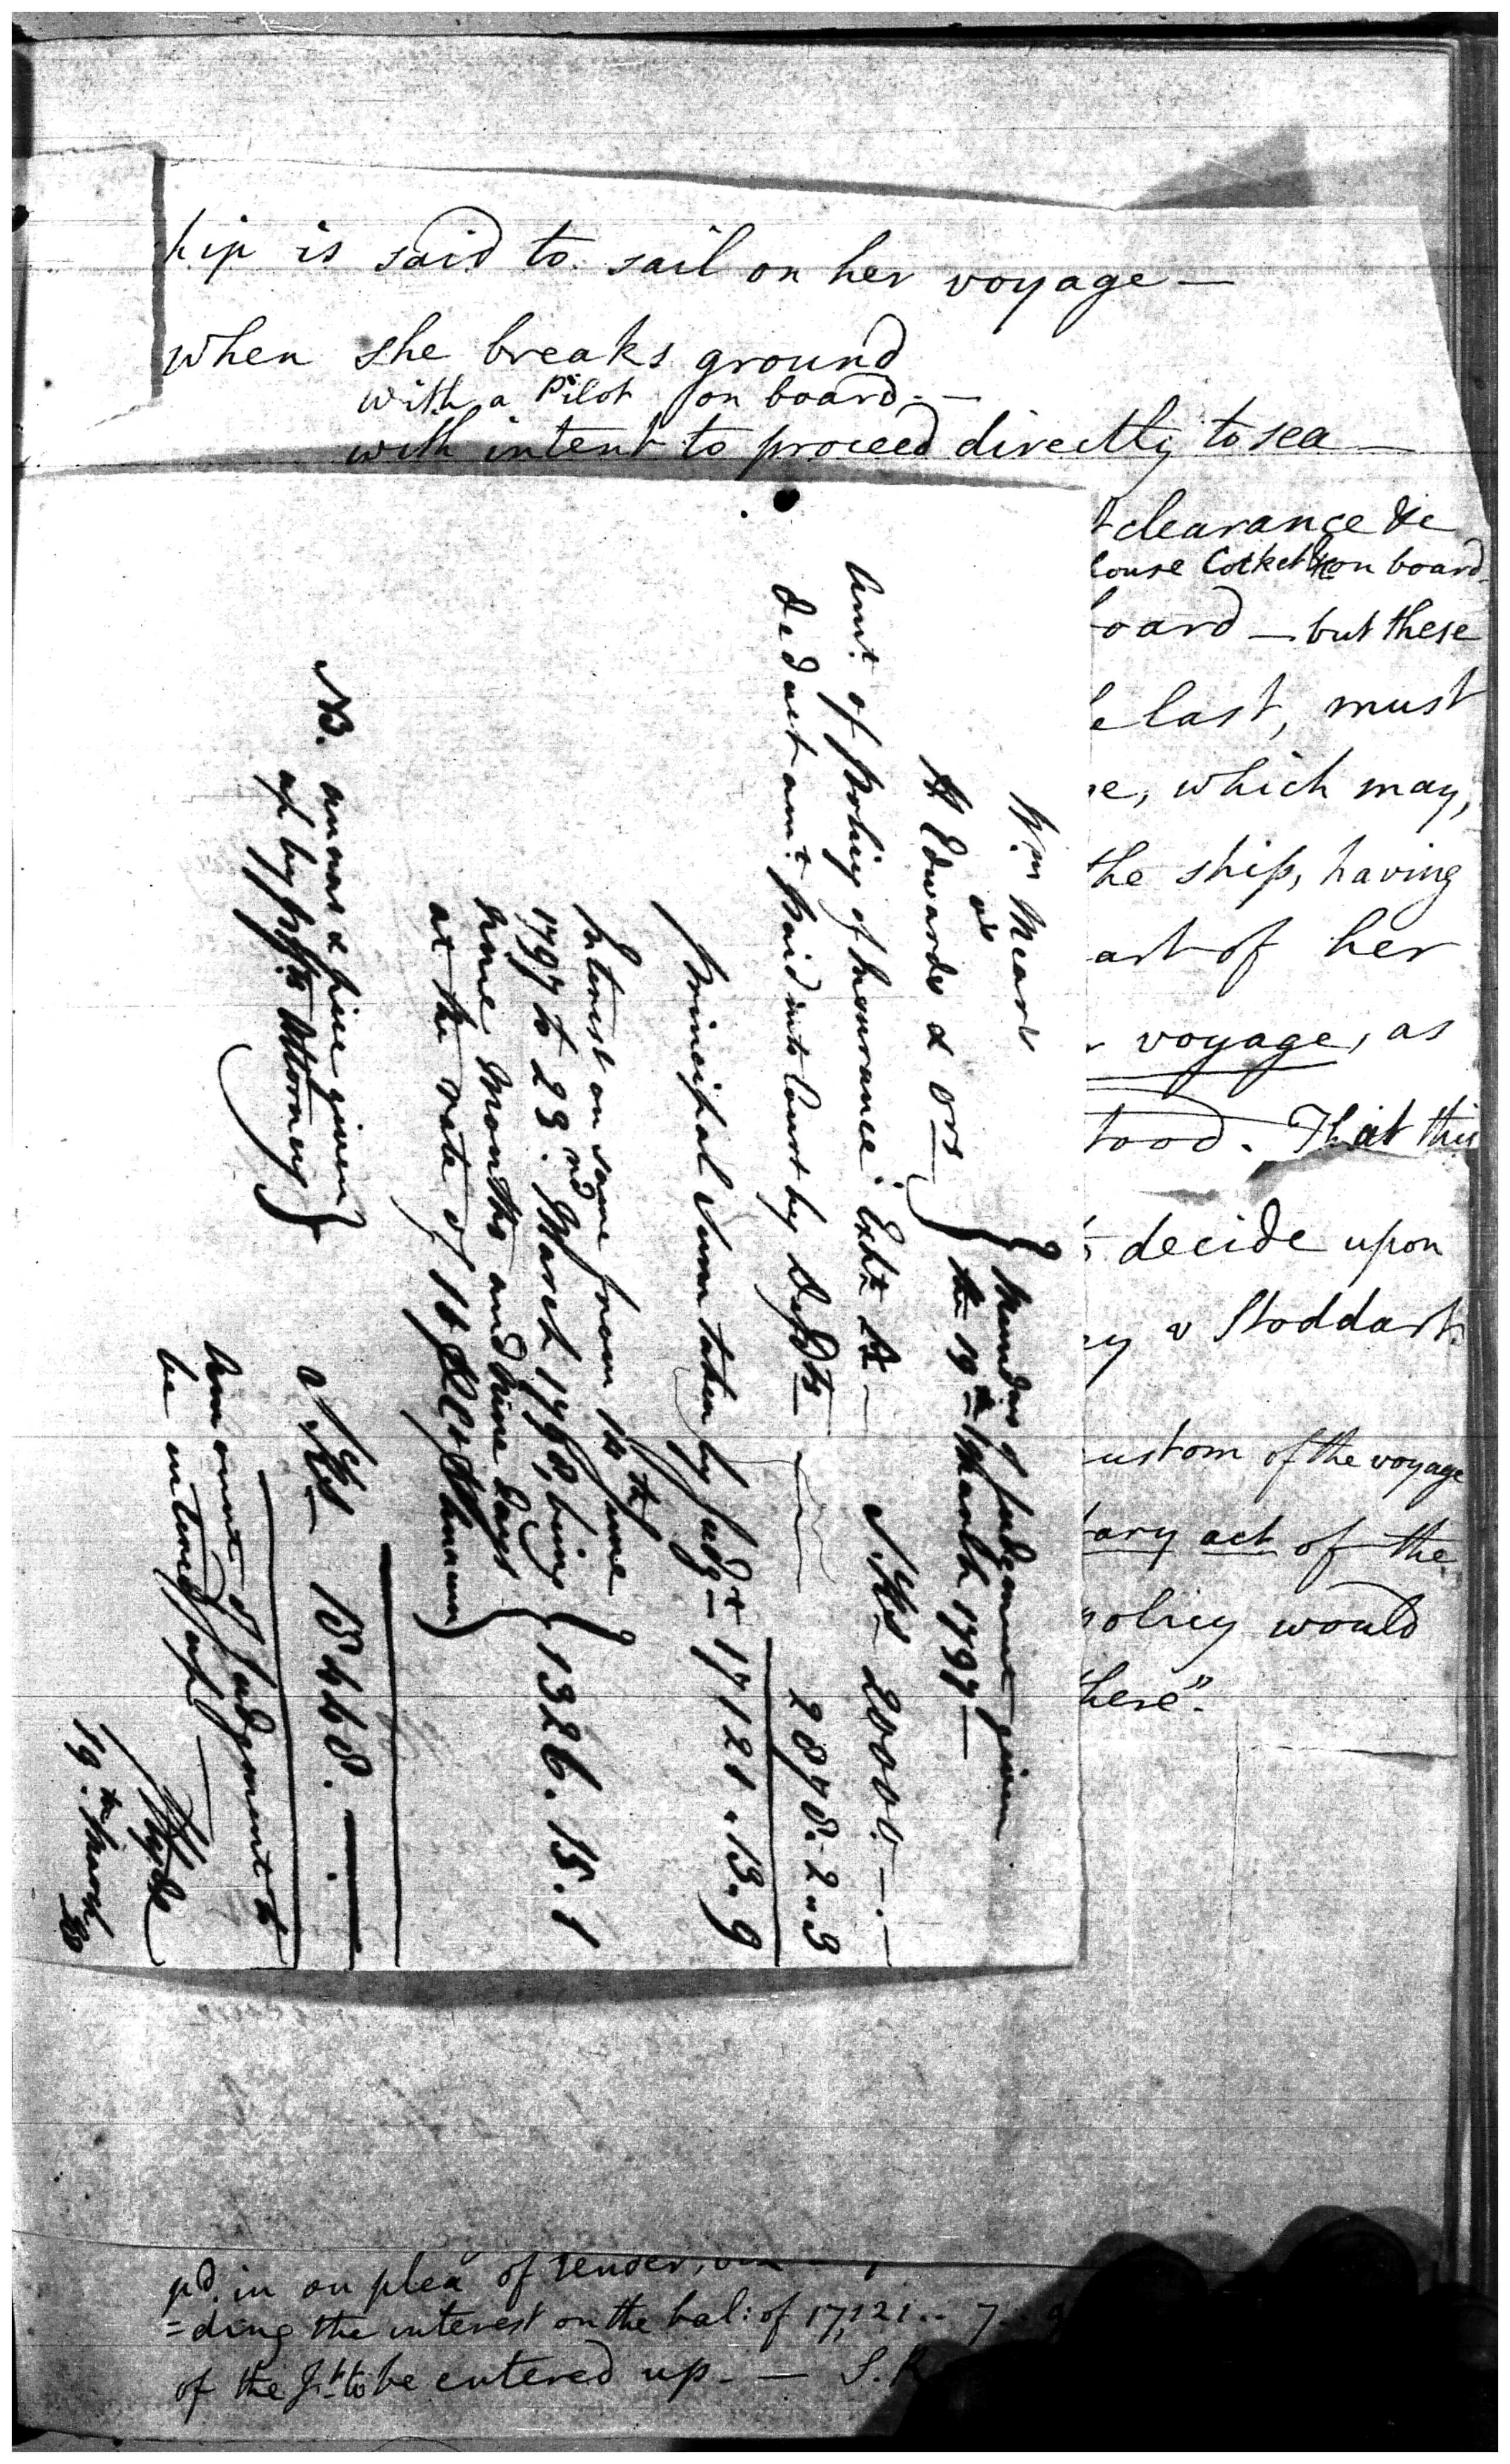 hip is said to sail on her voyage —
when she breaks ground
with a Pilot on board. —
with intent to proceed directly to sea —
clearance &c
house Cocket &c on board
oard — but these
e last, must
e, which may,
the ship, having
art of her
voyage, as
tood. That this
decide upon
y v Stoddart.
ustom of the voyage
tary act of the
policy would
here".
Wm Mears
vs
Edwards & Ors
of Judgment given
the 19th March 1798 —
Amt. of Policy of Insurance Exht. A — SRs 20000. —
deduct amt. paid into Court by Defts — 2878. 2. 3
Principal Sum taken by Judgt 17121. 13. 9
Interest on same from 14th June
1797 to 23rd. March 1798, being
nine Months and nine days
at the rate of
1326. 15. 1
SRs 18448. —
NB. annas & pice given
up by Plffs Attorney
Amount of Judgment to
be entered up —
Hyde
19th. March
pd. in on plea of tender,
=ding the interest on the bal: of 17,121.. 7.. 9
of the Jt. to be entered up. — S. R